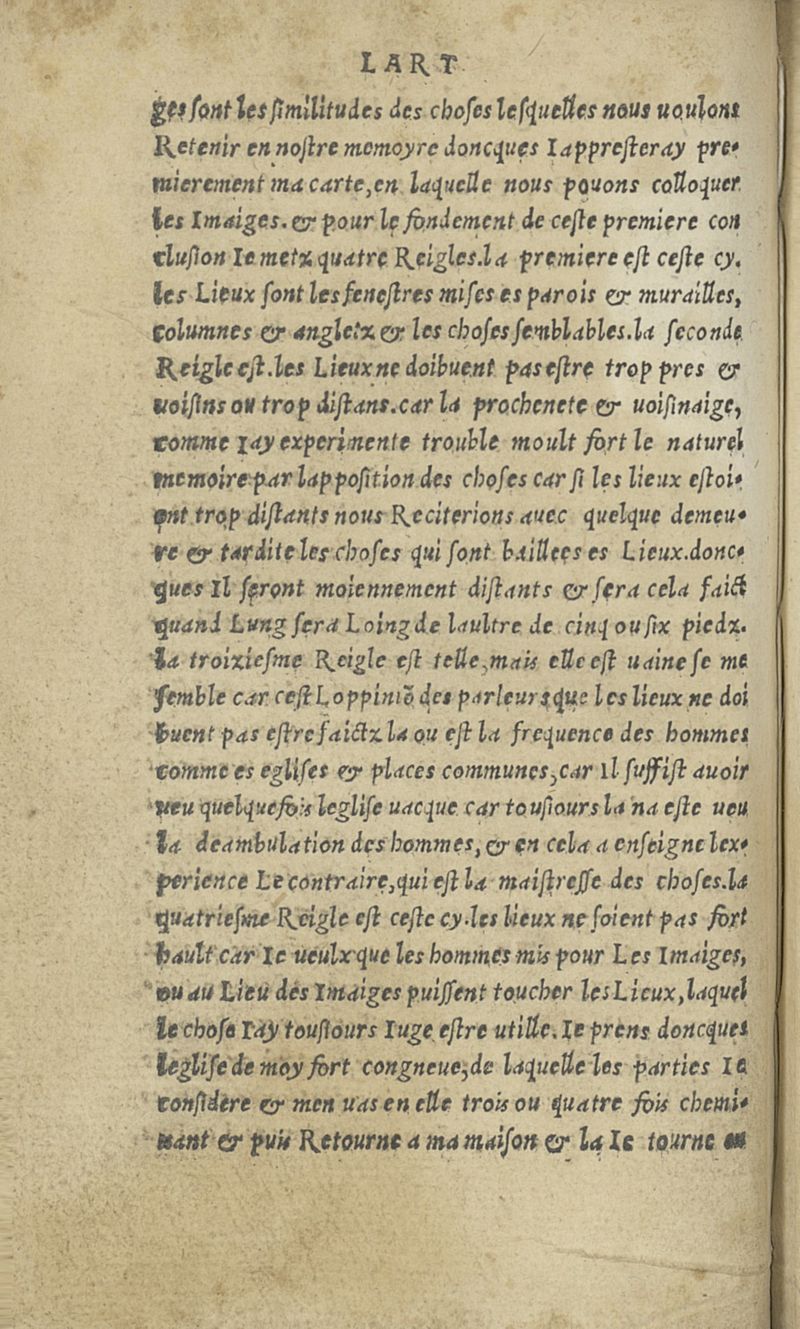 LART
ges sont les similitudes des choses lesquelles nous uoulons
Retenir en nostre memoyre doncques Iappresteray pre-
mierement ma carte, en laquelle nous pouons colloquer
les Imaiges. & pour le fondement de ceste premiere con
clusion Ie metz quatre Reigles. la premiere est ceste cy.
les Lieux sont les fenestres mises es parois & murailles,
columnes & angletz & les choses semblables. la seconde
Reigle est. les Lieux ne doibuent pas estre trop pres &
uoisins ou trop distans. car la prochenete & uoisinaige,
comme iay experimente trouble moult fort le naturel
memoire par lapposition des choses car si les lieux estoi-
ent trop distants nous Reciterions auec quelque demeu-
re & tardite les choses qui sont baillees es Lieux. donc-
ques Il seront moiennement distants & sera cela faict
quand Lung sera Loing de laultre de cinq ou six piedz.
la troiziesme Reigle est telle, mais elle est uaine se me
semble car cest Loppiniõ des parleurs que les lieux ne doi
buent pas estre faictz la ou est la frequence des hommes
comme es eglises & places communes, car il suffist auoir
ueu quelquefois leglise uacque car tousiours la na este ueu
la deambulation des hommes, & en cela a enseigne lex-
perience Le contraire, qui est la maistresse des choses. la
quatriesme Reigle est ceste cy. les lieux ne soient pas fort
hault car Ie ueulx que les hommes mis pour Les Imaiges,
ou au Lieu des Imaiges puissent toucher les Lieux, laquel
le chose Iay tousiours Iuge estre utille. Ie prens doncques
leglise de moy fort congneue, de laquelle les parties Ie
considere & men uas en elle trois ou quatre fois chemi-
nant & puis Retourne a ma maison & la Ie tourne en